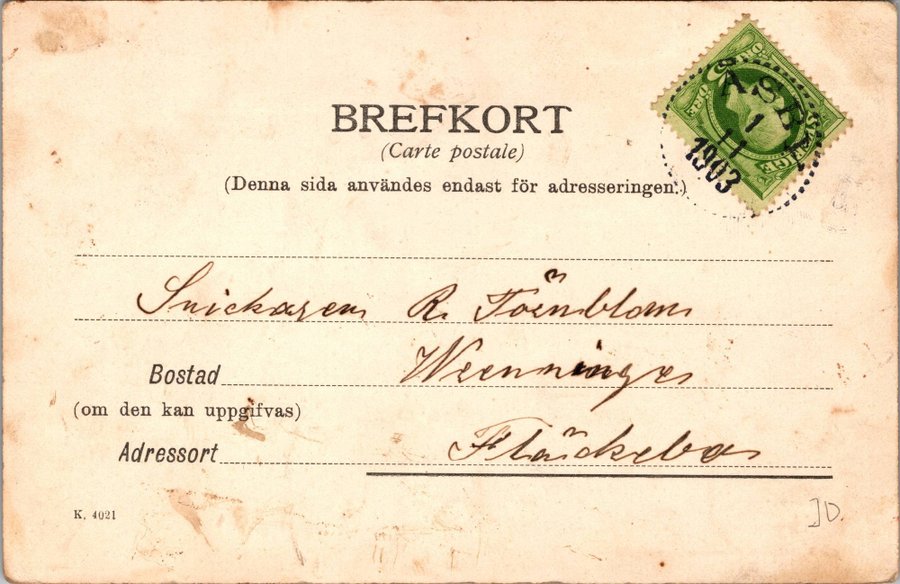 BREFKORT
(Carte postale)
(Denna sida användes endast för adresseringen.)
SVERIGE
1
11
1903
Snickaren R. Törnblom
Bostad Weenninge
(om den kan uppgifvas)
Adressort Fläckebo
K. 4021
JD.